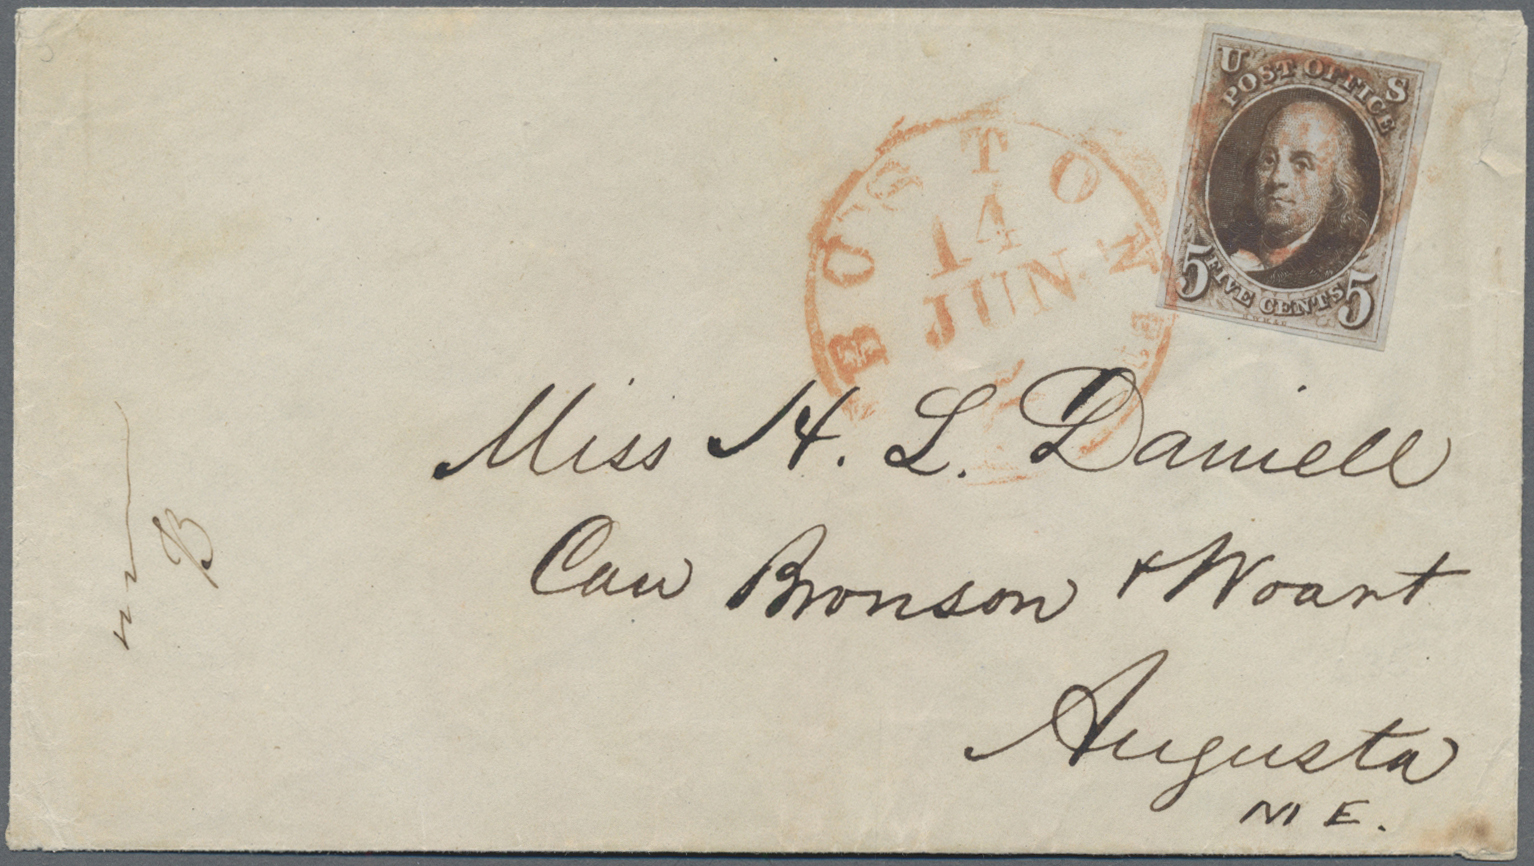 U S
POST OFFICE
5 FIVE CENTS 5
BOSTON
14
JUN
Miss H. L. Daniell
Care Bronson & Woart
Augusta
ME.
B